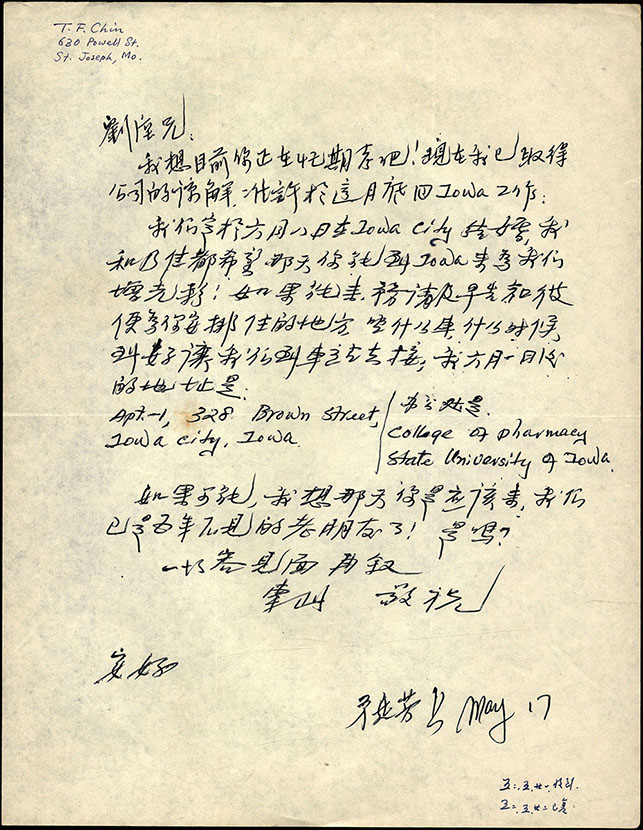 T. F. Chin
630 Powell St.
St. Joseph, Mo.
劉唐兄:
我想目前你正在忙期考吧!現在我已取得
公司的諒解,准許於這月底回Iowa工作.
我们是於六月八日在Iowa city 结婚,我
和乃佳都希望那天你能到Iowa来為我们
增光彩!如果能来,務請及早告知俊
便為你安排住的地方 坐什么車,什么时候
到好讓我们到車站去接,我六月一日後
的地址是:
Apt.-1, 328 Brown Street,
Iowa City, Iowa.
办公处是:
College of pharmacy
State University of Iowa.
如果可能,我想那天你是应該来,我们
已是五年不見的老朋友了! 是嗎?
一切容見面再叙
專此 敬祝
安好
芳上 May 17
五二.五.廿一收到
五二.五.廿二復